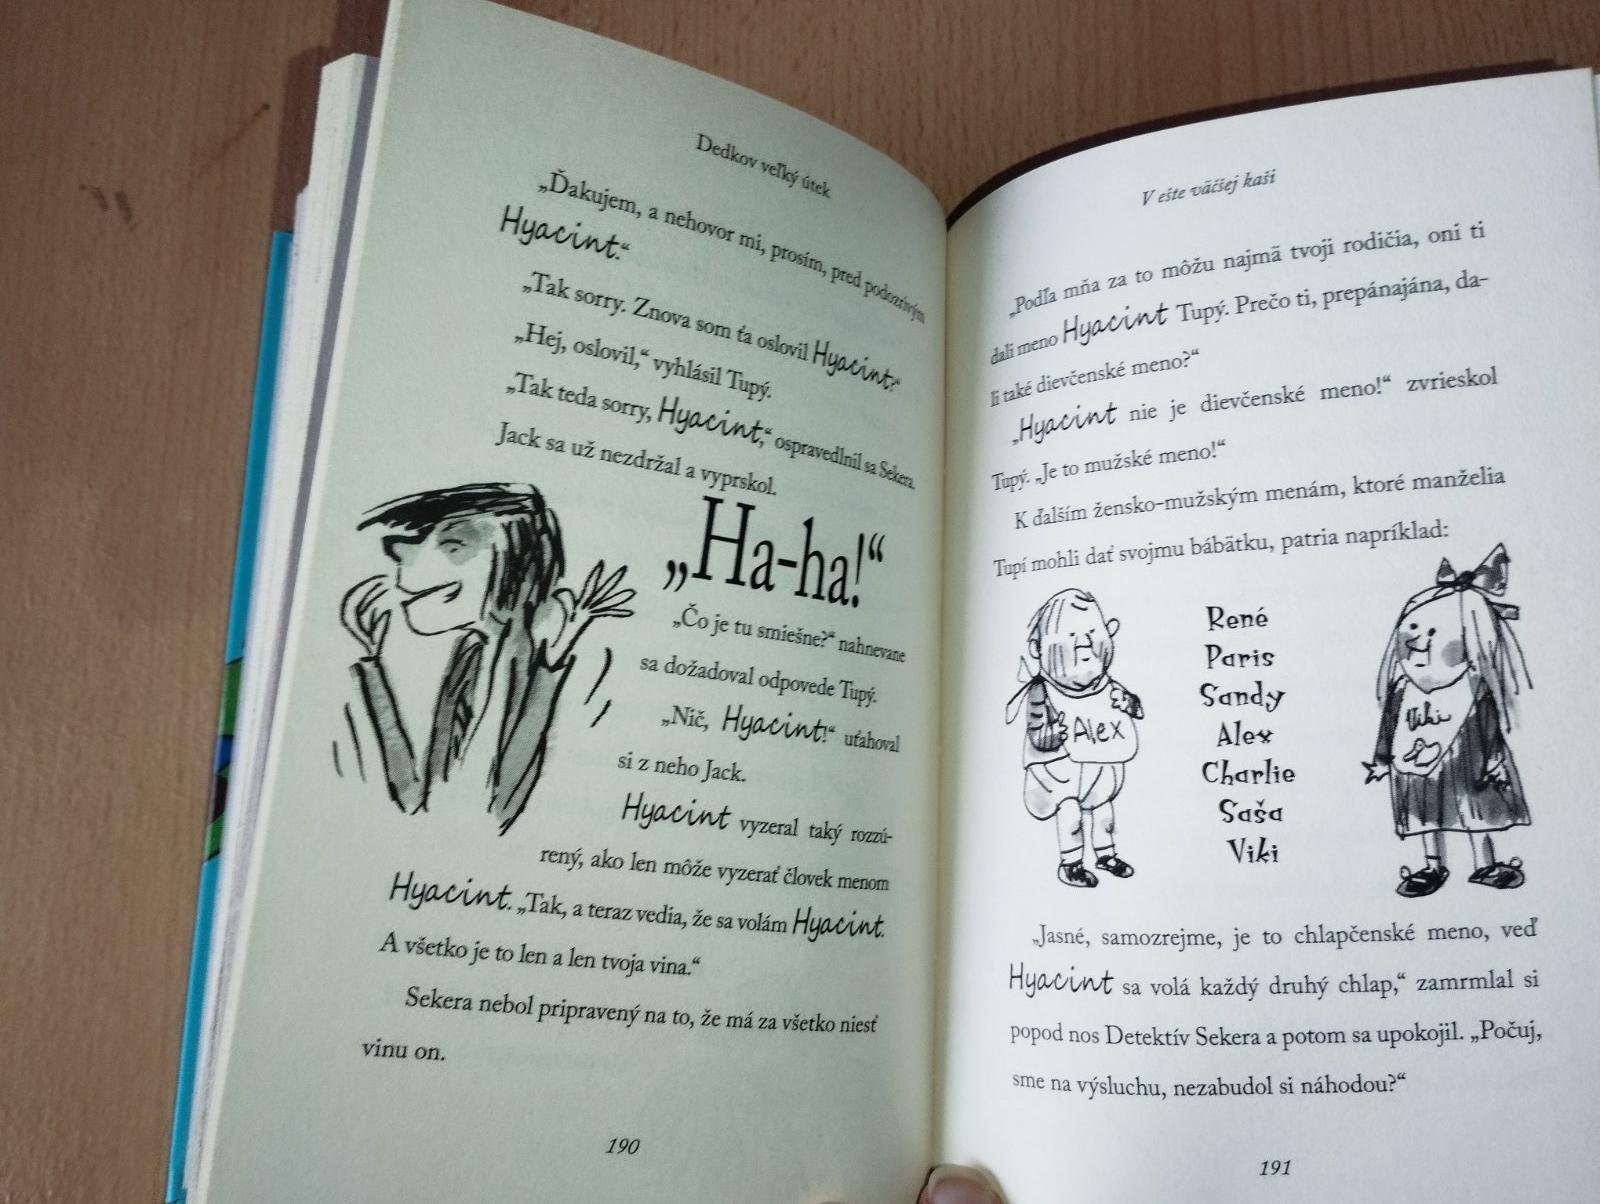 Dedkov veľký útek
„Ďakujem, a nehovor mi, prosím, pred podozrivým
Hyacint.“
„Tak sorry. Znova som ťa oslovil Hyacint?“
„Hej, oslovil,“ vyhlásil Tupý.
„Tak teda sorry, Hyacint,“ ospravedlnil sa Sekera.
Jack sa už nezdržal a vyprskol.
„Ha-ha!“
„Čo je tu smiešne?“ nahnevane
sa dožadoval odpovede Tupý.
„Nič, Hyacint!“ uťahoval
si z neho Jack.
Hyacint vyzeral taký rozzú-
rený, ako len môže vyzerať človek menom
Hyacint. „Tak, a teraz vedia, že sa volám Hyacint.
A všetko je to len a len tvoja vina.“
Sekera nebol pripravený na to, že má za všetko niesť
vinu on.
190
V ešte väčšej kaši
„Podľa mňa za to môžu najmä tvoji rodičia, oni ti
dali meno Hyacint Tupý. Prečo ti, prepánajána, da-
li také dievčenské meno?“
„Hyacint nie je dievčenské meno!“ zvrieskol
Tupý. „Je to mužské meno!“
K ďalším žensko-mužským menám, ktoré manželia
Tupí mohli dať svojmu bábätku, patria napríklad:
René
Paris
Sandy
Alex
Charlie
Saša
Viki
Alex
Viki
„Jasné, samozrejme, je to chlapčenské meno, veď
Hyacint sa volá každý druhý chlap,“ zamrmlal si
popod nos Detektív Sekera a potom sa upokojil. „Počuj,
sme na výsluchu, nezabudol si náhodou?“
191